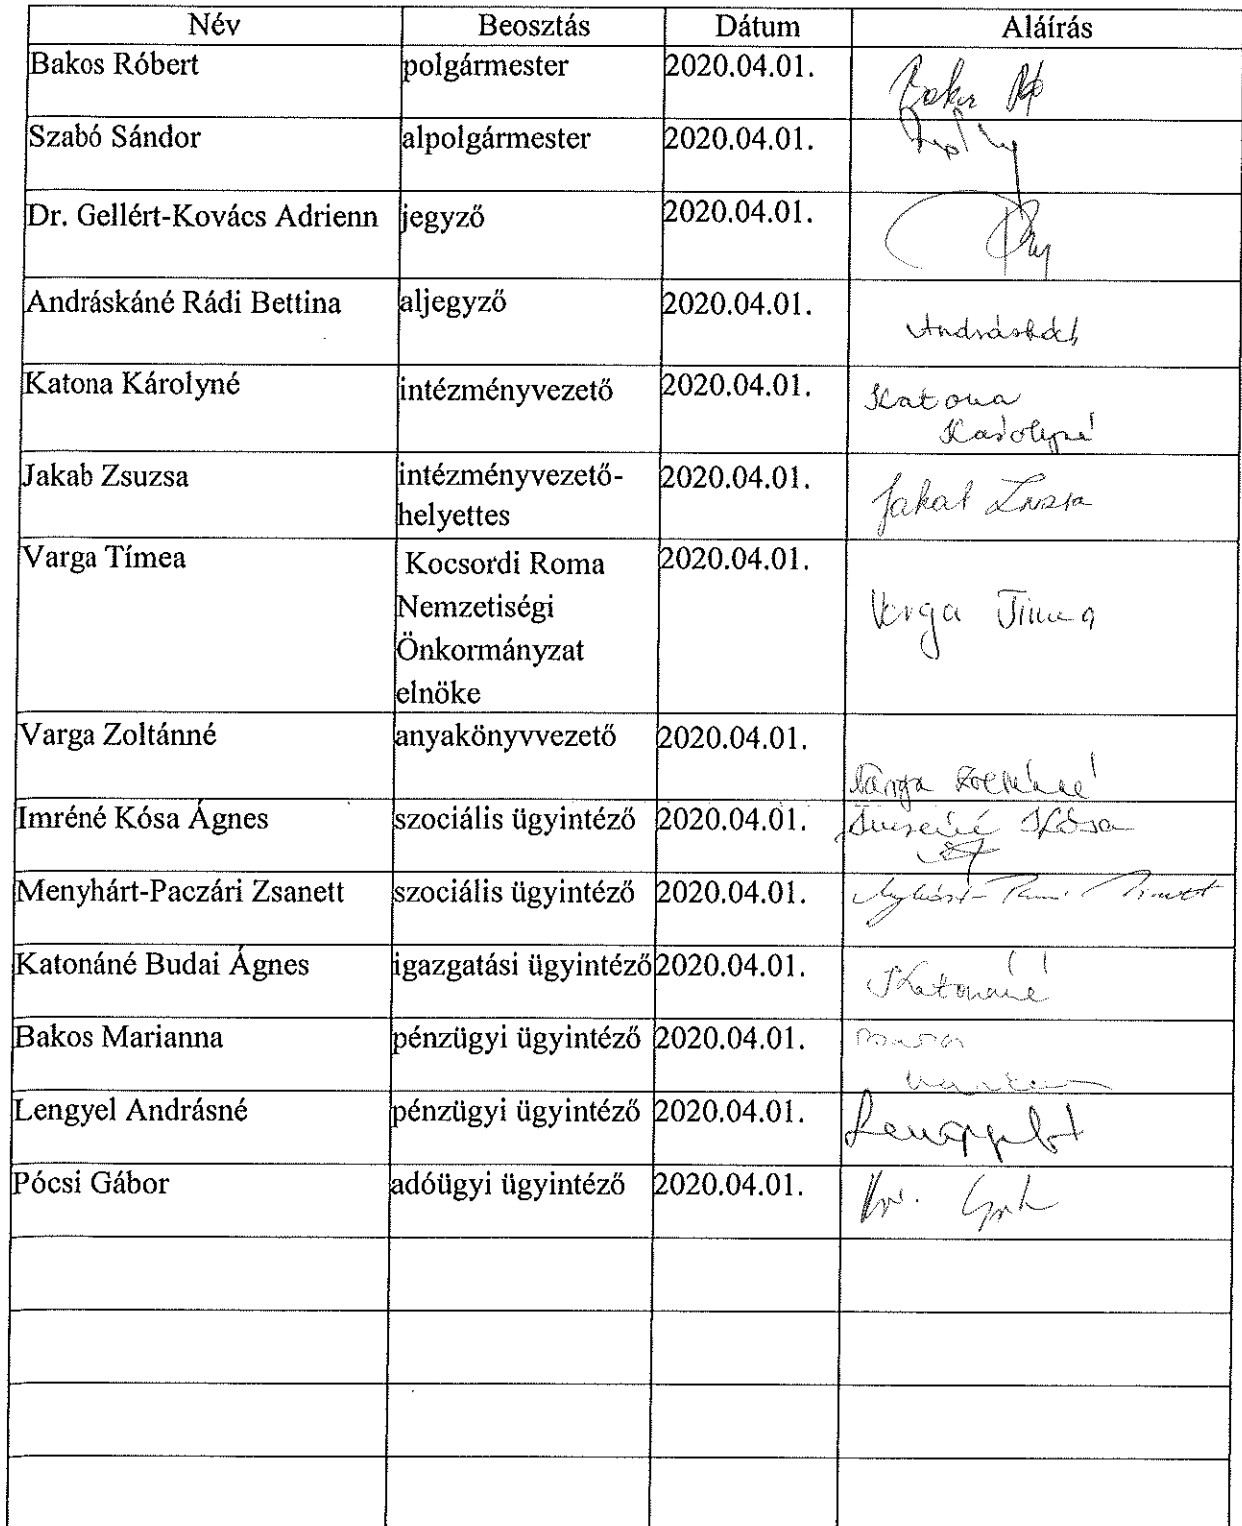 Név Beosztás Dátum Aláírás
Bakos Róbert polgármester 2020.04.01.
Szabó Sándor alpolgármester 2020.04.01.
Dr. Gellért-Kovács Adrienn jegyző 2020.04.01.
Andráskáné Rádi Bettina aljegyző 2020.04.01.
Katona Károlyné intézményvezető 2020.04.01. Katona
Károlyné
Jakab Zsuzsa intézményvezető- 2020.04.01. Jakab Zsuzsa
helyettes
Varga Tímea Kocsordi Roma 2020.04.01.
Nemzetiségi Varga Tímea
Önkormányzat
elnöke
Varga Zoltánné anyakönyvvezető 2020.04.01.
Varga Zoltánné
Imréné Kósa Ágnes szociális ügyintéző 2020.04.01. Imréné Kósa
Menyhárt-Paczári Zsanett szociális ügyintéző 2020.04.01.
Katonáné Budai Ágnes igazgatási ügyintéző 2020.04.01. Katonáné
Bakos Marianna pénzügyi ügyintéző 2020.04.01.
Lengyel Andrásné pénzügyi ügyintéző 2020.04.01.
Pócsi Gábor adóügyi ügyintéző 2020.04.01.